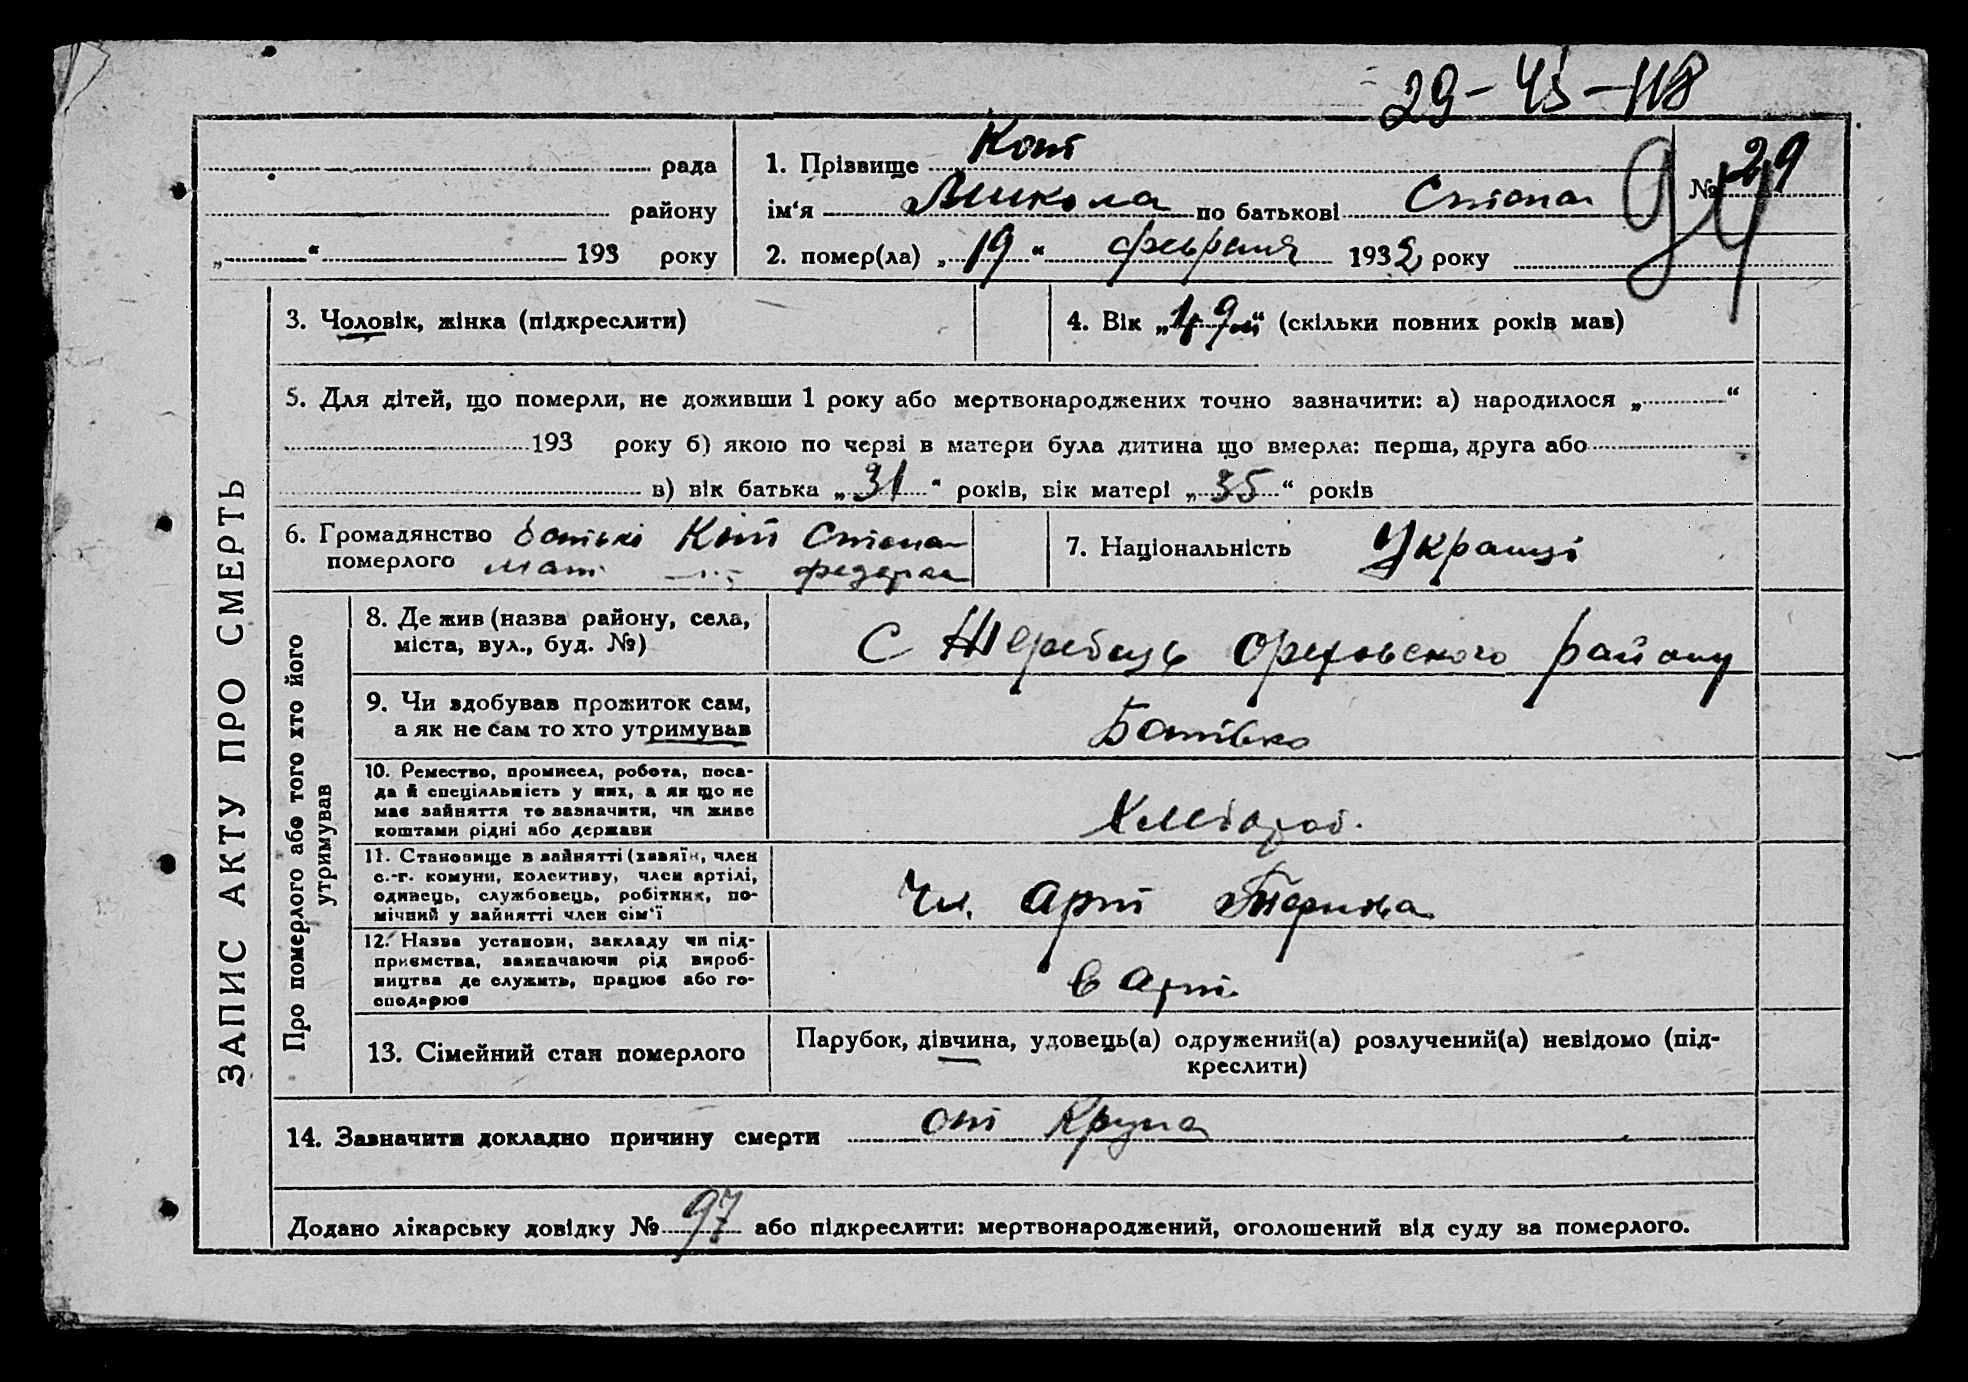 29-45-118
рада
району
„ “ 193 року
1. Прізвище Кот
ім‘я Микола по батькові Степан
№ 29
94
2. помер(ла) „19“ февраля 1932 року
ЗАПИС АКТУ ПРО СМЕРТЬ
3. Чоловік, жінка (підкреслити)
4. Вік „ “ (скільки повних років мав)
5. Для дітей, що померли, не доживши 1 року або мертвонароджених точно зазначити: а) народилося „ “
193 року б) якою по черзі в матери була дитина що вмерла: перша, друга або
в) вік батька „31“ років, вік матері „35“ років
6. Громадянство батько Кот Степан
померлого мати —„—
7. Національність Украінці
Про померлого або того хто його
утримував
8. Де жив (назва району, села,
міста, вул., буд. №)
С Жеребець Ореховского району
9. Чи здобував прожиток сам,
а як не сам то хто утримував
Батько
10. Ремество, промисел, робота, поса-
да й спеціяльність у них, а як що не
має зайняття то зазначити, чи живе
коштами рідні або держави
Хлебороб.
11. Становище в зайнятті (хазяїн, член
с.-г. комуни, колективу, член артілі,
одинець, службовець, робітник, по-
мічний у зайнятті член сім‘ї
Чл. арт
12. Назва установи, закладу чи під-
приємства, зазначаючи рід вироб-
ництва де служить, працює або го-
сподарює
в арт.
13. Сімейний стан померлого
Парубок, дівчина, удовець(а) одружений(а) розлучений(а) невідомо (під-
креслити)
14. Зазначити докладно причину смерти от Крупа
Додано лікарську довідку № 97 або підкреслити: мертвонароджений, оголошений від суду за померлого.